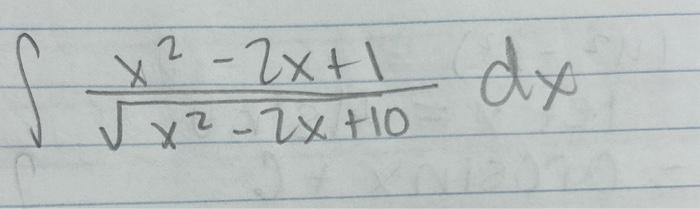 ∫ (x² - 2x + 1) / √(x² - 2x + 10) dx